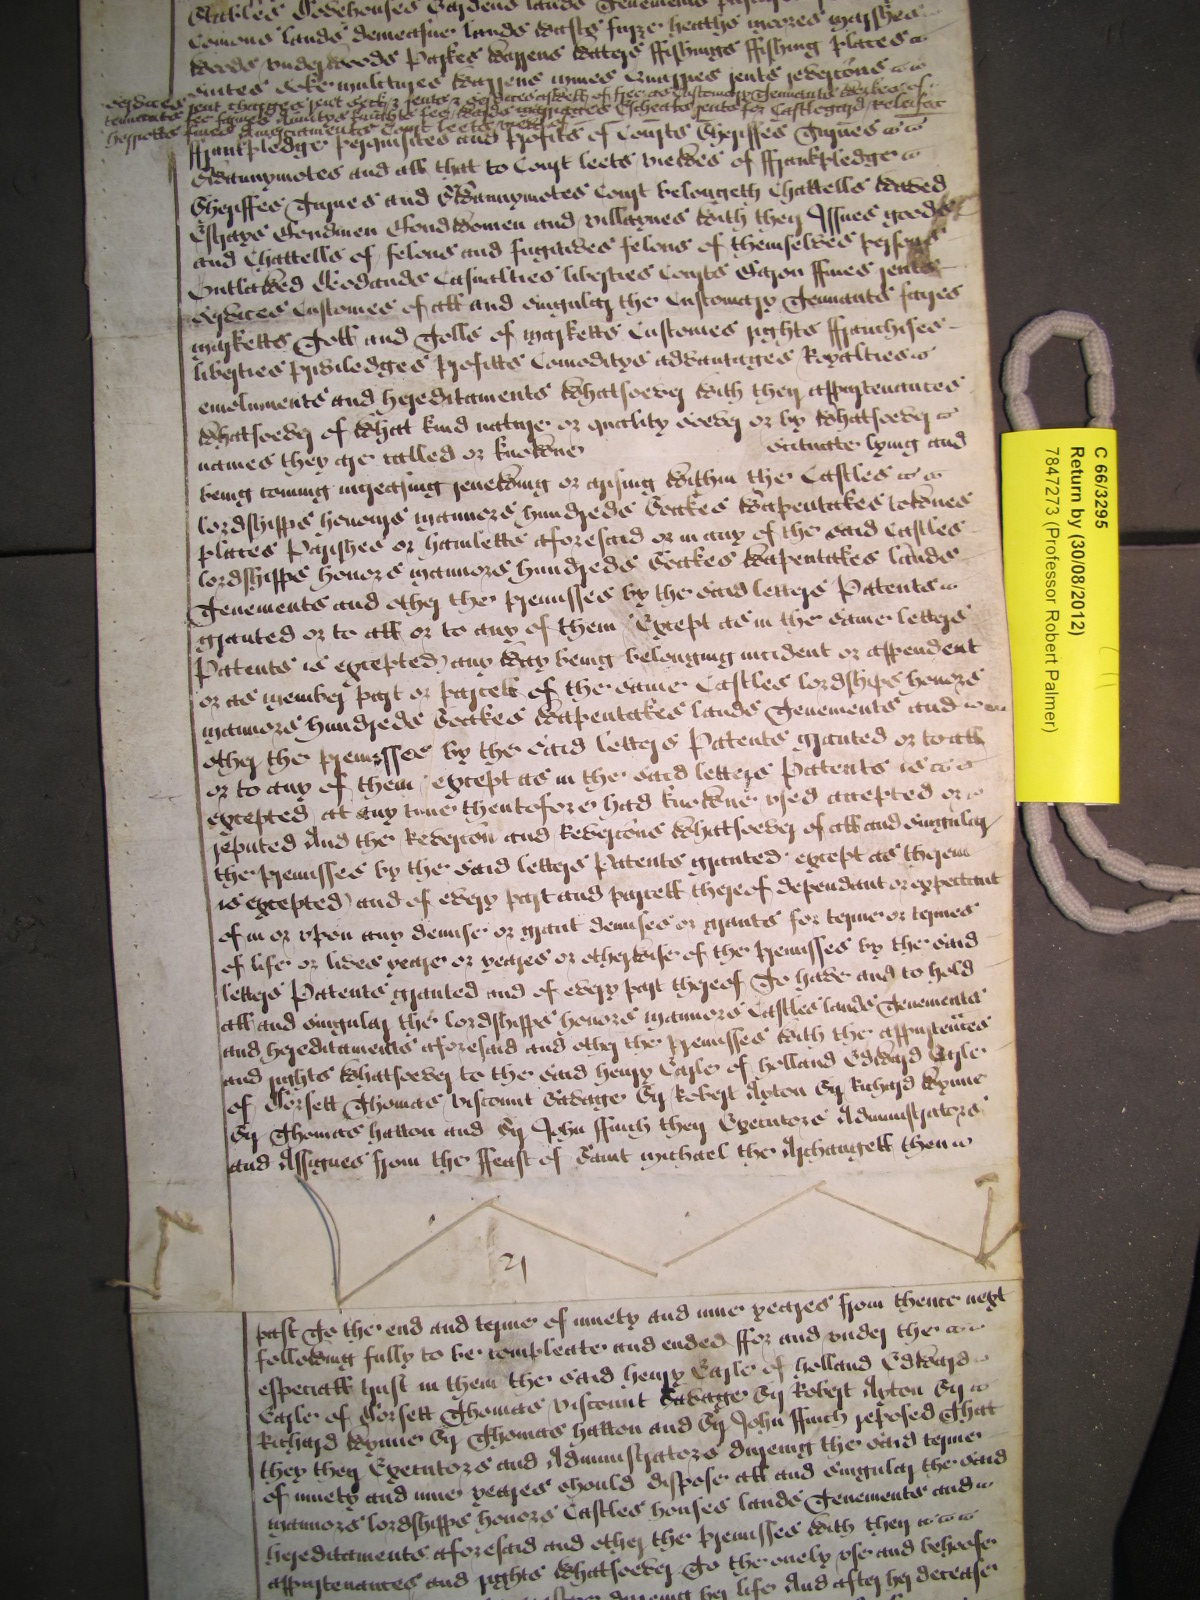 Stables Dovehouses Gardens lands Tenements
Comons lands demeasne lands wasts furze heaths moores marshes
woods underwoods Parkes warrens waters ffishings ffishing places
suites soke mulitures warrens mines Quarries rents revercons
services rent charges rent seck & rents & services aswell of free as Customary Tennants workes of
tennants fee farmes Annuitys knights fees wards marriages Escheats rents for Castlegard Releifes
herriotts fines Amerciaments Court leets views of
ffrankpledge perquisites and profits of Courts Sheriffes Turnes
Swannymotes and all that to Court leets viewes of ffrankpledge
Sheriffes Turnes and Swannymotes Court belongeth Chattells waved
Estrays Bondmen Bondwomen and villaynes with their Issues goods
and Chattells of felons and fugitives felons of themselves persons
Outlawed Deodands Casualties liberties Courts Baron ffines rents
services Customes of all and singular the Customary Tennants fayres
marketts Toll and Tolls of marketts Customes rights ffranchises
liberties priviledges profitts Comoditys advantages Royalties
emoluments and hereditaments whatsoever with their appurtenances
whatsoever of what kind nature or quality soever or by whatsoever
names they are called or knowne scituate lying and
being coming increasing renewing or arising within the Castles
lordshipps honors mannors hundreds Soakes wapentakes townes
places Parishes or hamletts aforesaid or in any of the said Castles
lordshipps honors mannors hundreds Soakes wapentakes lands
Tenements and other the premisses by the said letters Patents
granted or to all or to any of them (Except as in the same letters
Patents is excepted) any way being belonging incident or appendent
or as member part or parcell of the same Castles lordships honors
mannors hundreds Soakes wapentakes lands Tenements and
other the premisses by the said letters Patents granted or to all
or to any of them (except as in the said letters Patents is
excepted) at any time thentofore had knowne used accepted or
reputed And the Revercon and Revercons whatsoever of all and singular
the premisses by the said letters Patents granted (except as therein
is excepted) and of every part and parcell thereof dependant or expectant
of in or upon any demise or grant demises or grants for terme or termes
of life or lives yeare or yeares or otherwise of the premisses by the said
letters Patents granted and of every part thereof To have and to hold
all and singular the lordshipps honors mannors Castles lands Tenements
and hereditaments aforesaid and other the premisses with the appurtences
and rights whatsoever to the said henry Earle of holland Edward Earle
of Dorsett Thomas viscount Savage Sir Robert Ayton Sir Richard Wynne
Sir Thomas hatton and Sir John ffinch their Executors Administrators
and Assignes from the ffeast of Saint michael the Archangell then
21
past To the end and terme of ninety and nine yeares from thence next
following fully to be compleate and ended ffor and under the
especiall trust in them the said henry Earle of holland Edward
Earle of Dorsett Thomas viscount Savage Sir Robert Ayton Sir
Richard Wynne Sir Thomas hatton and Sir John ffinch reposed That
they their Executors and Administrators dureing the said terme
of ninety and nine yeares should dispose all and singular the said
mannors lordshipps honors Castles houses lands Tenements and
hereditaments aforesaid and other the premisses with their
appurtenances and rights whatsoever To the onely use and behoofe
dureing her life And after her decease
C 66/3295
Return by (30/08/2012)
7847273 (Professor Robert Palmer)